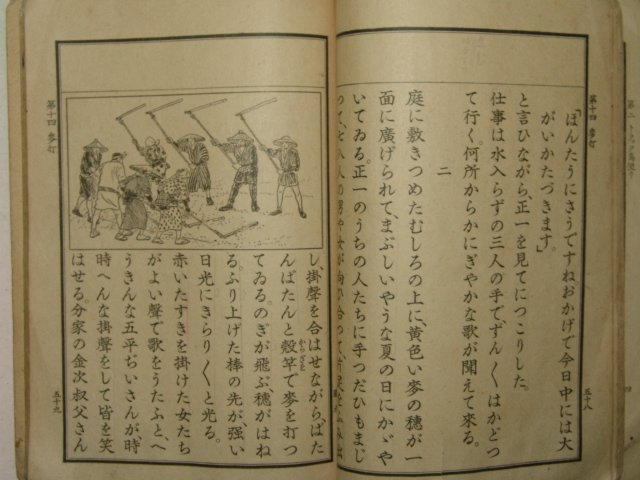 第十四 麥打
五十八
「ほんたうにさうですね。おかげで今日中には大
がいかたづきます。」
と言ひながら、正一を見てにつこりした。
仕事は水入らずの三人の手で、ずん〱はかどつ
て行く。何所からかにぎやかな歌が聞えて來る。
二
庭に敷きつめたむしろの上に、黄色い麥の穗が一
面に廣げられて、まぶしいやうな夏の日にかゞや
いてゐる。正一のうちの人たちに手つだひもまじ
つて、七八人の男や女が向ひ合つて、
第十四 麥打
五十九
し、掛聲を合はせながら、ばた
んばたんと殼竿で麥を打つ
からざを
てゐる。のぎが飛ぶ、穗がはね
る。ふり上げた棒の先が、強い
日光にきらり〱と光る。
赤いたすきを掛けた女たち
がよい聲で歌をうたふと、へ
うきんな五平ぢいさんが、時
時へんな掛聲をして皆を笑
はせる。分家の金次叔父さん